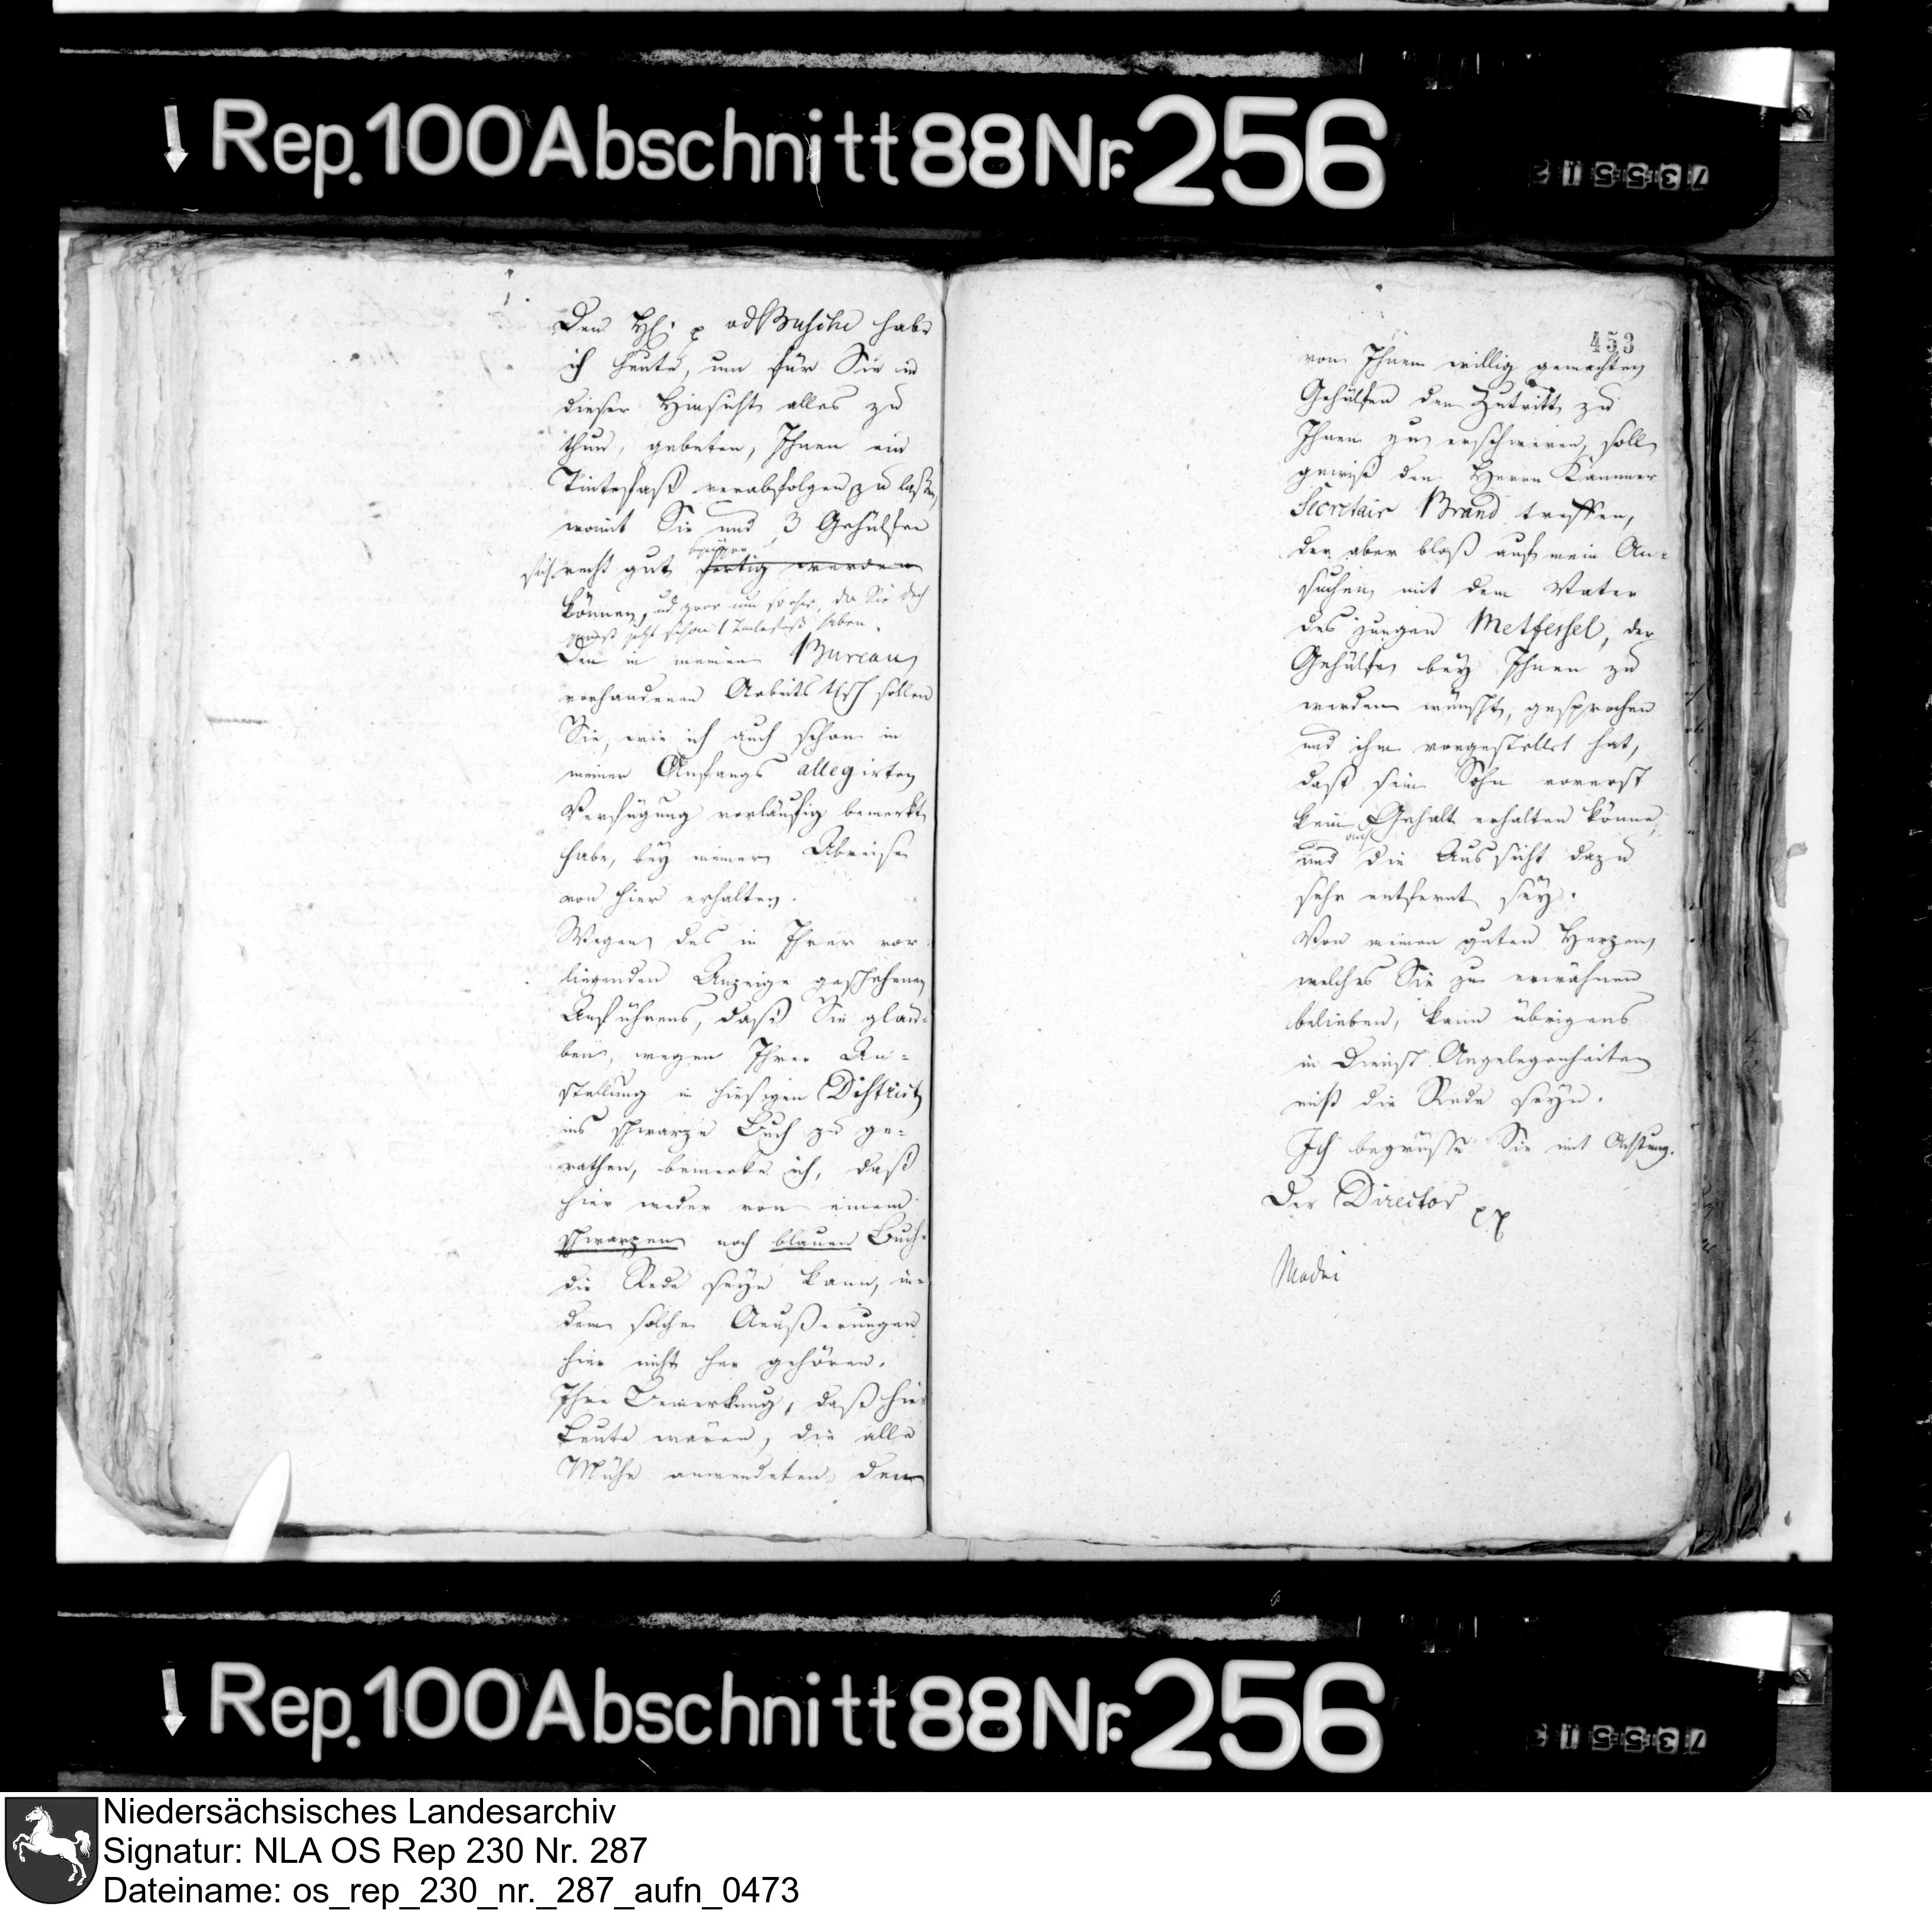 Rep. 100 Abschnitt 88 Nr. 256
Den H. p vd Busche habe
ich heute, um für Sie in
dieser Hinsicht alles zu
thun, gebeten, Ihnen ein
Tintefaß verabfolgen zu laßen,
womit Sie und 3 Gehülfen
sich recht gut fertig werden
können, und zwar um so eher, da Sie doch
jetzt schon 1 Tintefaß haben.
Den in meinem Bureau
vorhandenen Arbeitstisch sollen
Sie, wie ich auch schon in
meiner Anfangs allegirten
Verfügung vorläufig bemerkt
habe, bey meiner Abreise
von hier erhalten.
Wegen des in Ihrer vor
liegenden Anzeige geschehenen
Anführens, daß Sie glau-
ben, wegen Ihrer An-
stellung in hiesigen District
ins schwarze Buch zu ge-
rathen, bemerke ich, daß
hier weder von einem
schwarzen noch blauen Buche
die Rede seyn kann, in-
dem solche Aeußerungen
hier nicht her gehören.
Ihre Bemerkung, daß hier
Leute wären, die alle
Mühe anwendeten, den
453
von Ihnen willig gemachten
Gehülfen den Zutritt zu
Ihnen zu erschweren, soll
gewiß den Herrn Kammer
Secretair Brand treffen,
der aber bloß auf mein An-
suchen mit dem Vater
des jungen Metfessel, der
Gehülfe bey Ihnen zu
werden wünscht, gesprochen
und ihm vorgestellet hat,
daß sein Sohn vorerst
kein Gehalt erhalten könne,
und auch die Aussicht dazu
sehr entfernt sey.
Von meinem guten Herzen,
welches Sie zu erwähnen
belieben, kann übrigens
in Dienst Angelegenheiten
nicht die Rede seyn.
Ich begrüsse Sie mit Achtung.
Der Director
Rep. 100 Abschnitt 88 Nr. 256
Niedersächsisches Landesarchiv
Signatur: NLA OS Rep 230 Nr. 287
Dateiname: os_rep_230_nr._287_aufn_0473